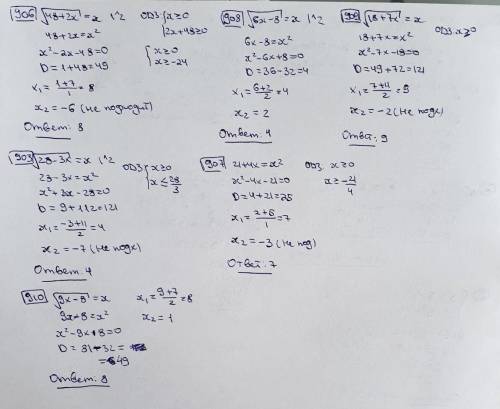 906 √48+2x = x |^2 ОДЗ { x≥0
{ 2x+48≥0
48+2x=x²
x²-2x-48=0 { x≥0
{ x≥-24
D=1+48=49
x₁=(1+7)/1=8
x₂=-6 (не подходит)
Ответ: 8
908 √6x-8=x |^2
6x-8=x²
x²-6x+8=0
D=36-32=4
x₁=(6+2)/2=4
x₂=2
Ответ: 4
√18+7x=x
18+7x=x² ОДЗ x≥0
x²-7x-18=0
D=49+72=121
x₁=(7+11)/2=9
x₂=-2 (не подх)
Ответ: 9
903 √28-3x=x |^2
28-3x=x² ОДЗ { x≥0
{ x≤28/3
x²+3x-28=0
D=9+112=121
x₁=(-3+11)/2=4
x₂=-7 (не подх)
Ответ: 4
907 21+4x=x² ОДЗ. x≥0
x²-4x-21=0 x≥-21/4
D=4+21=25
x₁=(2+5)/1=7
x₂=-3 (не под)
Ответ: 7
910 √9x-8=x x₁=(9+7)/2=8
9x-8=x² x₂=1
x²-9x+8=0
D=81-32=
=49
Ответ: 8